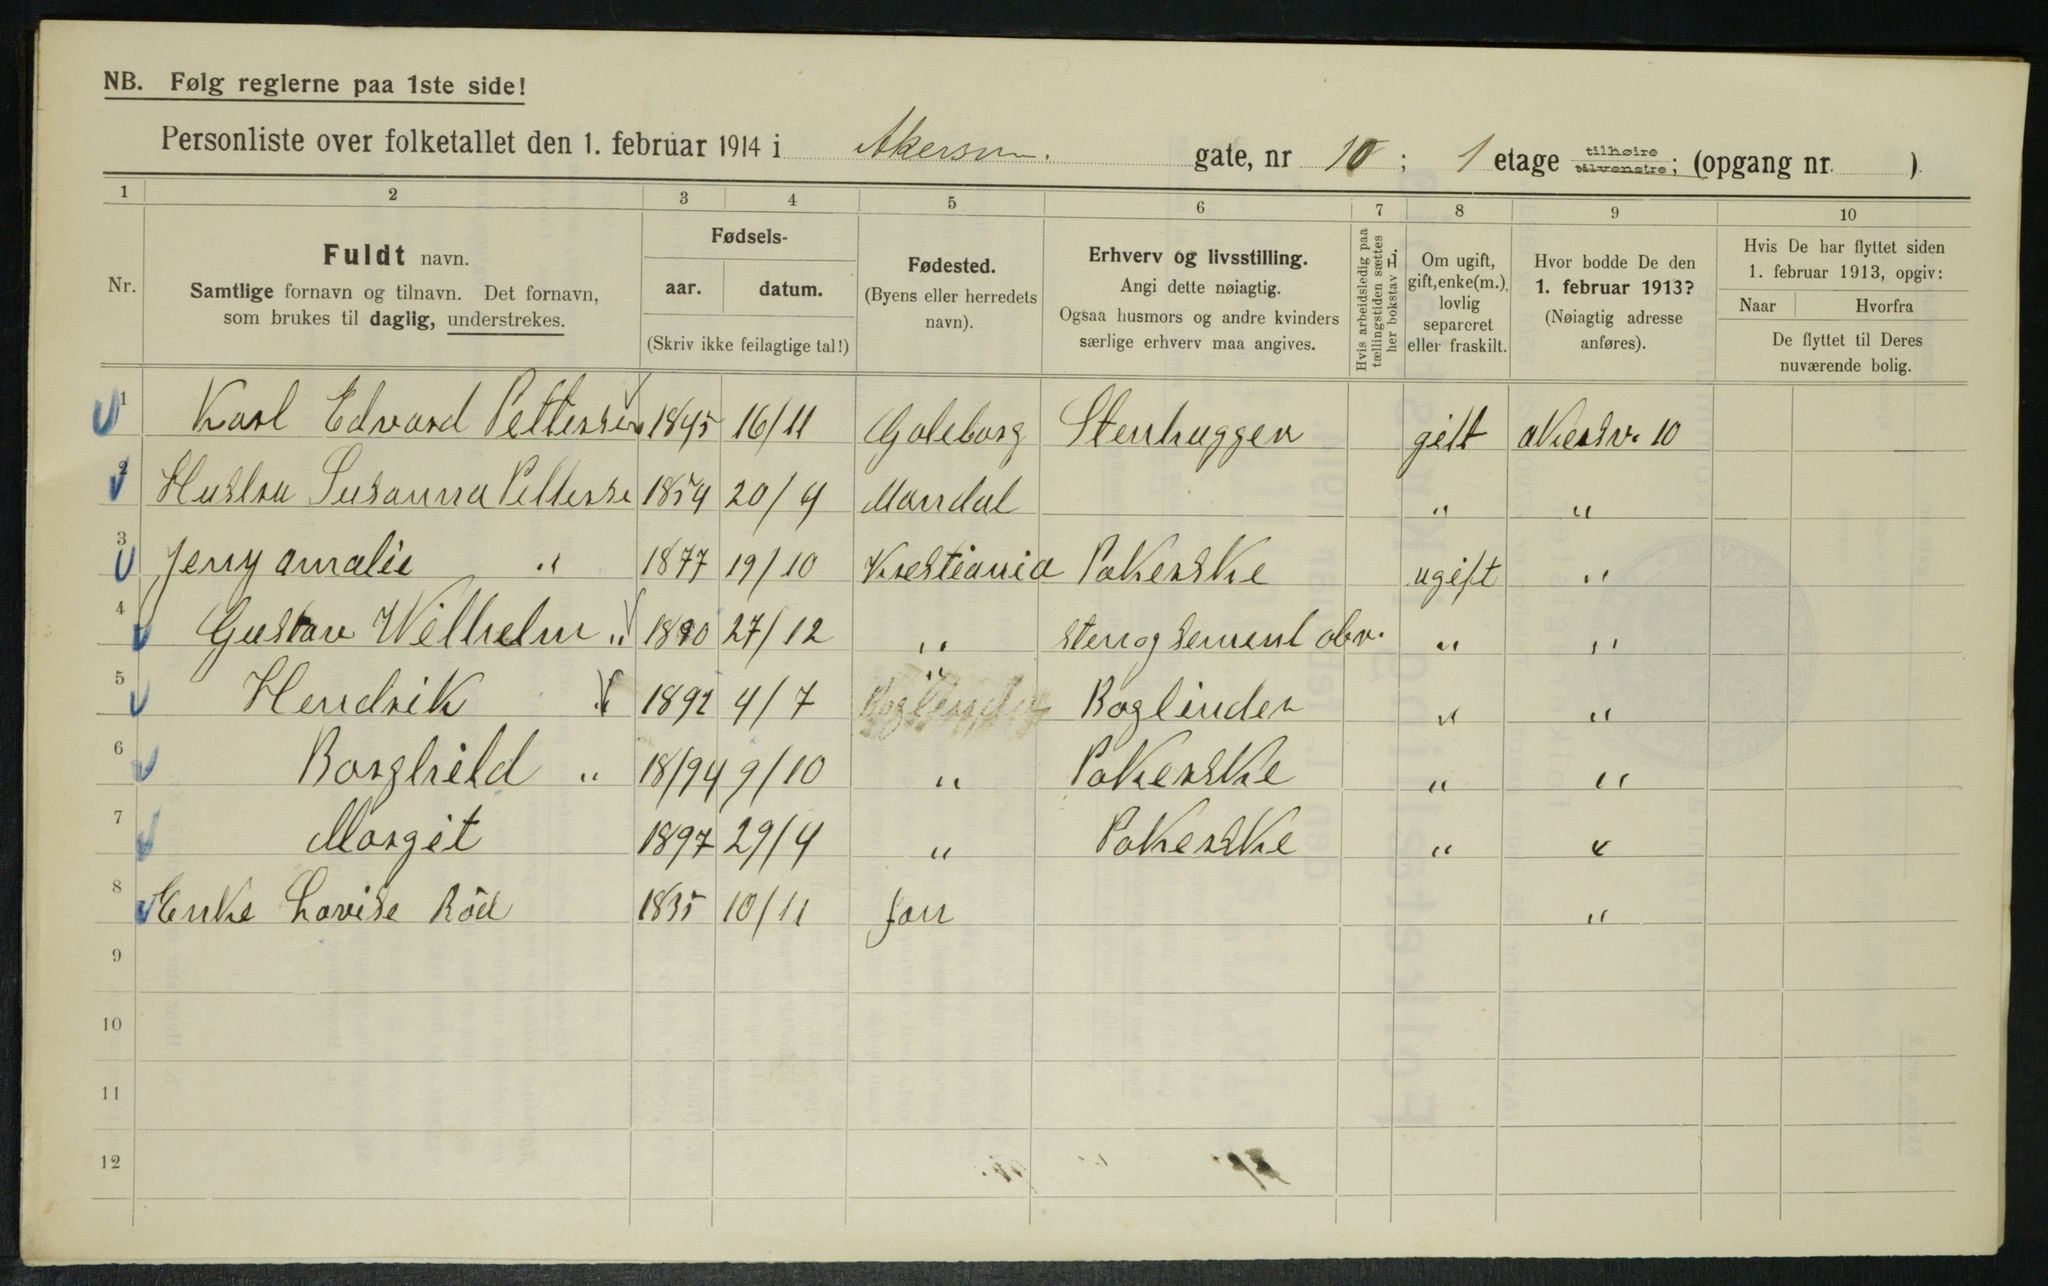 NB. Følg reglerne paa 1ste side!
Personliste over folketallet den 1. februar 1914 i Akersv. gate, nr 10; 1 etage tilhøire tilvenstre; (opgang nr. )
1 2 3 4 5 6 7 8 9 10
Nr.
Fuldt navn.
Samtlige fornavn og tilnavn. Det fornavn,
som brukes til daglig, understrekes.
Fødsels-
aar. datum.
(Skriv ikke feilagtige tal!)
Fødested.
(Byens eller herredets
navn).
Erhverv og livsstilling.
Angi dette nøiagtig.
Ogsaa husmors og andre kvinders
særlige erhverv maa angives.
Hvis arbeidsledig paa
tællingstiden sættes
her bokstav L.
Om ugift,
gift, enke(m.),
lovlig
separeret
eller fraskilt.
Hvor bodde De den
1. februar 1913?
(Nøiagtig adresse
anføres).
Hvis De har flyttet siden
1. februar 1913, opgiv:
Naar Hvorfra
De flyttet til Deres
nuværende bolig.
1 Karl Edvard Pettersen 1845 16/11 Goteborg Stenhugger gift Akersv. 10
2 Hustru Susanna Pettersse 1854 20/4 Mandal " "
3 Jeny Amalie " 1877 19/10 Krestiania Pakerske ugift "
4 Gustav Wilhelm " 1890 27/12 " sten og sement abr. " "
5 Hendrik " 1892 4/7 " Boglinder Boglinder " "
6 Borghild " 18/94 9/10 " Pakerske " "
7 Margit 1897 29/4 " Pakerske " "
8 Enke Lovise Röd 1835 10/11 "
9
10
11
12